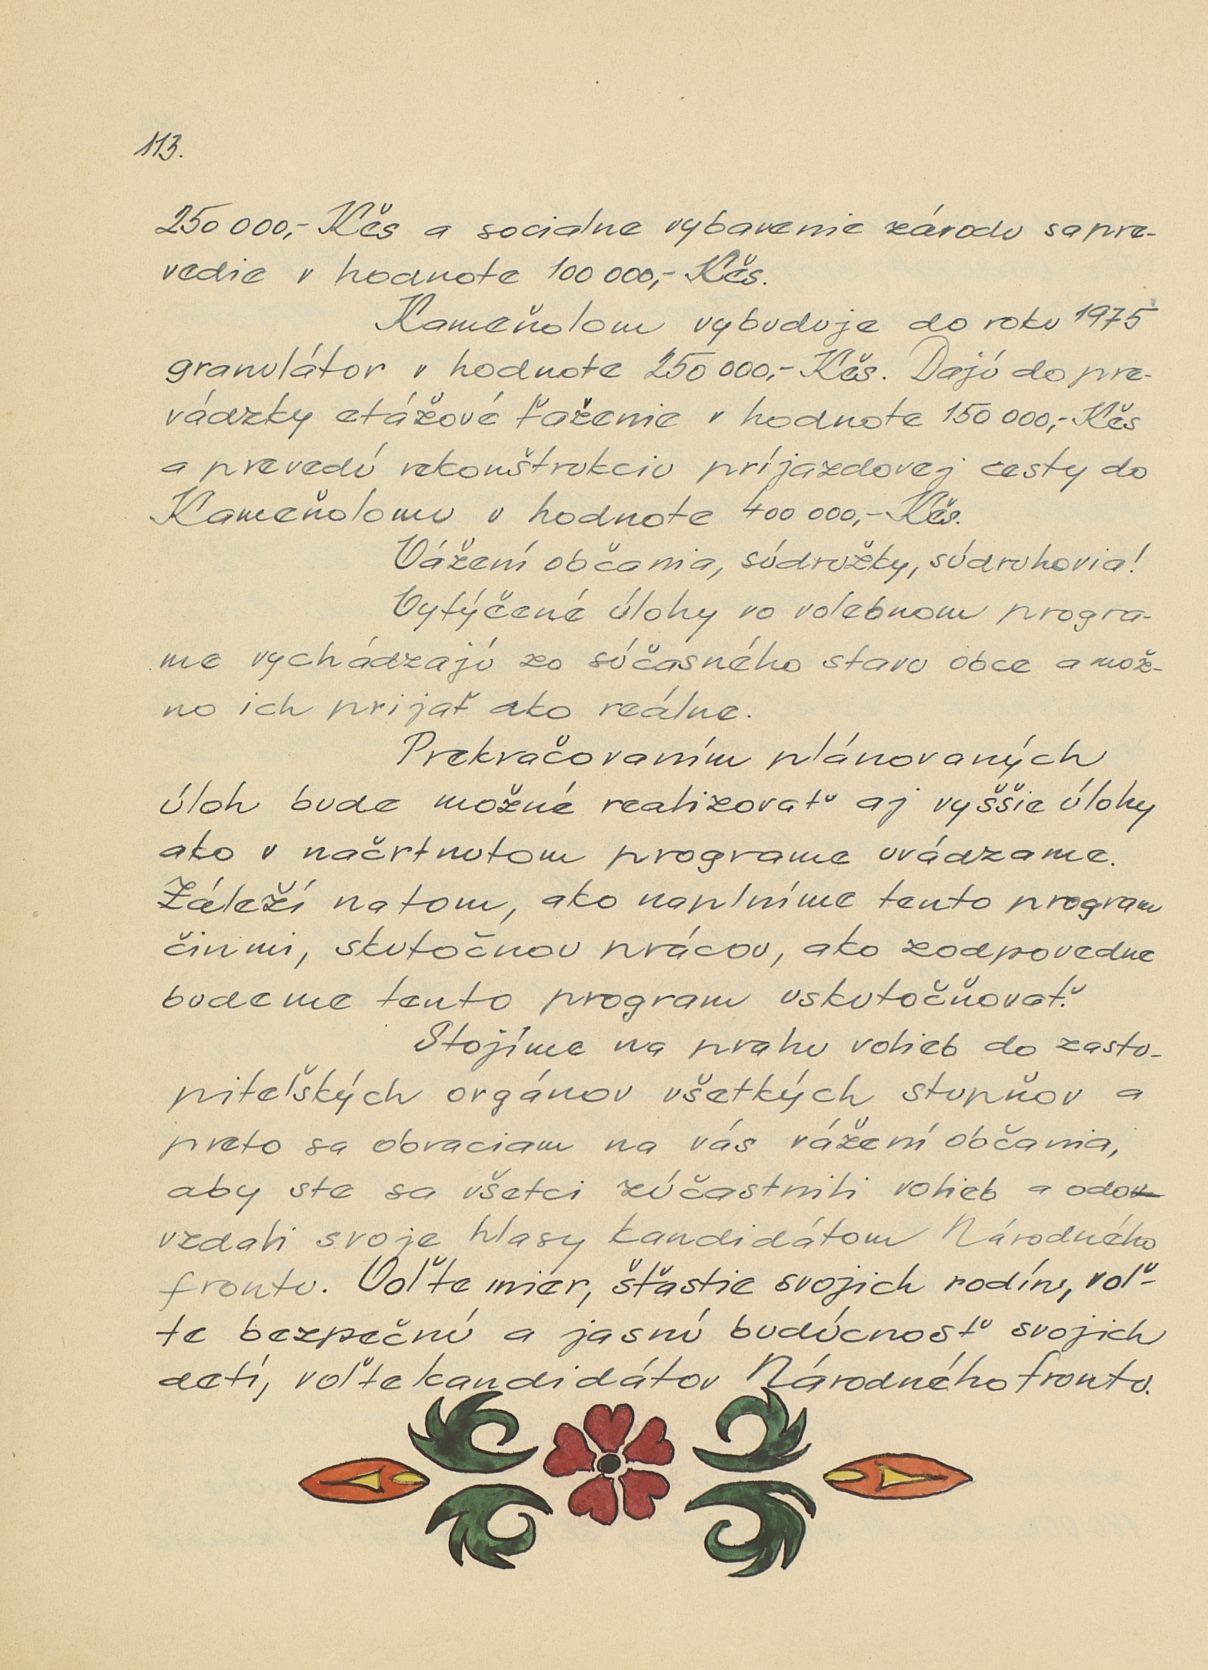 113.
250 000,- Kčs a socialne vybavenie závodu sa pre-
vedie v hodnote 100 000,- Kčs.
Kameňolom vybuduje do roku 1975
granulátor v hodnote 250 000,- Kčs. Dajú do pre-
vádzky etážové ťaženie v hodnote 150 000,- Kčs
a prevedú rekonštrukciu príjazdovej cesty do
Kameňolomu v hodnote 400 000,- Kčs.
Vážení občania, súdružky, súdruhovia!
Vytýčené úlohy vo volebnom progra-
me vychádzajú zo súčasného stavu obce a mož-
no ich prijať ako reálne.
Prekračovaním plánovaných
úloh bude možné realizovať aj vyššie úlohy
ako v načrtnutom programe uvádzame.
Záleží na tom, ako naplníme tento program
činmi, skutočnou prácou, ako zodpovedne
budeme tento program uskutočňovať.
Stojíme na prahu volieb do zastu-
piteľských orgánov všetkých stupňov a
preto sa obraciam na vás vážení občania,
aby ste sa všetci zúčastnili volieb a odov
vzdali svoje hlasy kandidátom Národného
frontu. Voľte mier, šťastie svojich rodín, voľ-
te bezpečnú a jasnú budúcnosť svojich
detí, voľte kandidátov Národného frontu.